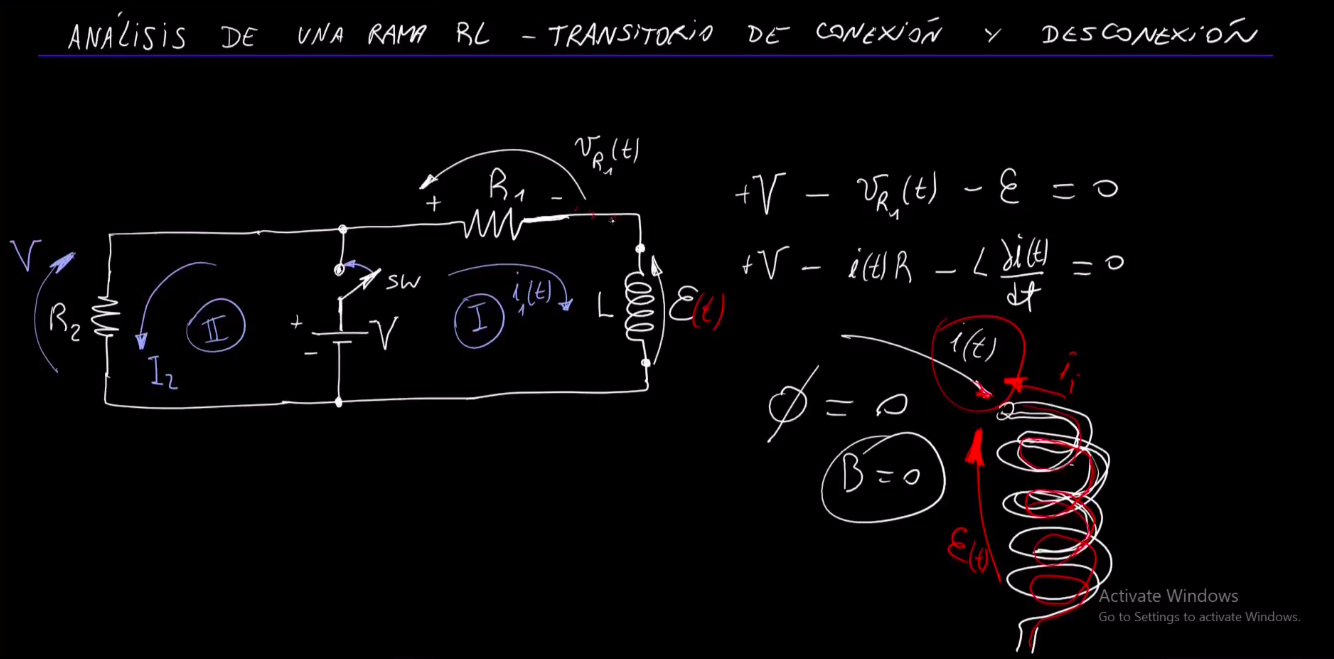 ANÁLISIS DE UNA RAMA RL - TRANSITORIO DE CONEXIÓN Y DESCONEXIÓN
v_R1(t)
+ R1 -
V
R2
I2
II
SW
+
-
V
I
i1(t)
L
ε(t)
+V - v_R1(t) - ε = 0
+V - i(t)R - L di(t)/dt = 0
i(t)
i_i
ϕ = 0
B = 0
ε(t)
Activate Windows
Go to Settings to activate Windows.